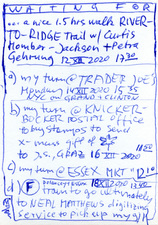 WAITING FOR
... a nice 1.5 hrs walk RIVER-
TO-RIDGE Trail w/ Curtis
Homber-Jackson + Petra
Gehrung 12 XII 2020 1730
a) my turn @ TRADER JOE'S
Monday 14 XII 2020 15 35
NYC ON GRAND & CLINTON
b) my turn @ KNICKER-
BOCKER POSTAL OFFICE
to buy stamps to send
X-mas gift of
to J.S., GRAZ 16 XII 2020 1150
c) my turn @ ESSEX MKT 1210
d) F 18 XII 2020
I want to go alternately
to NEAL MATTHEWS digitizing
service to pick up my